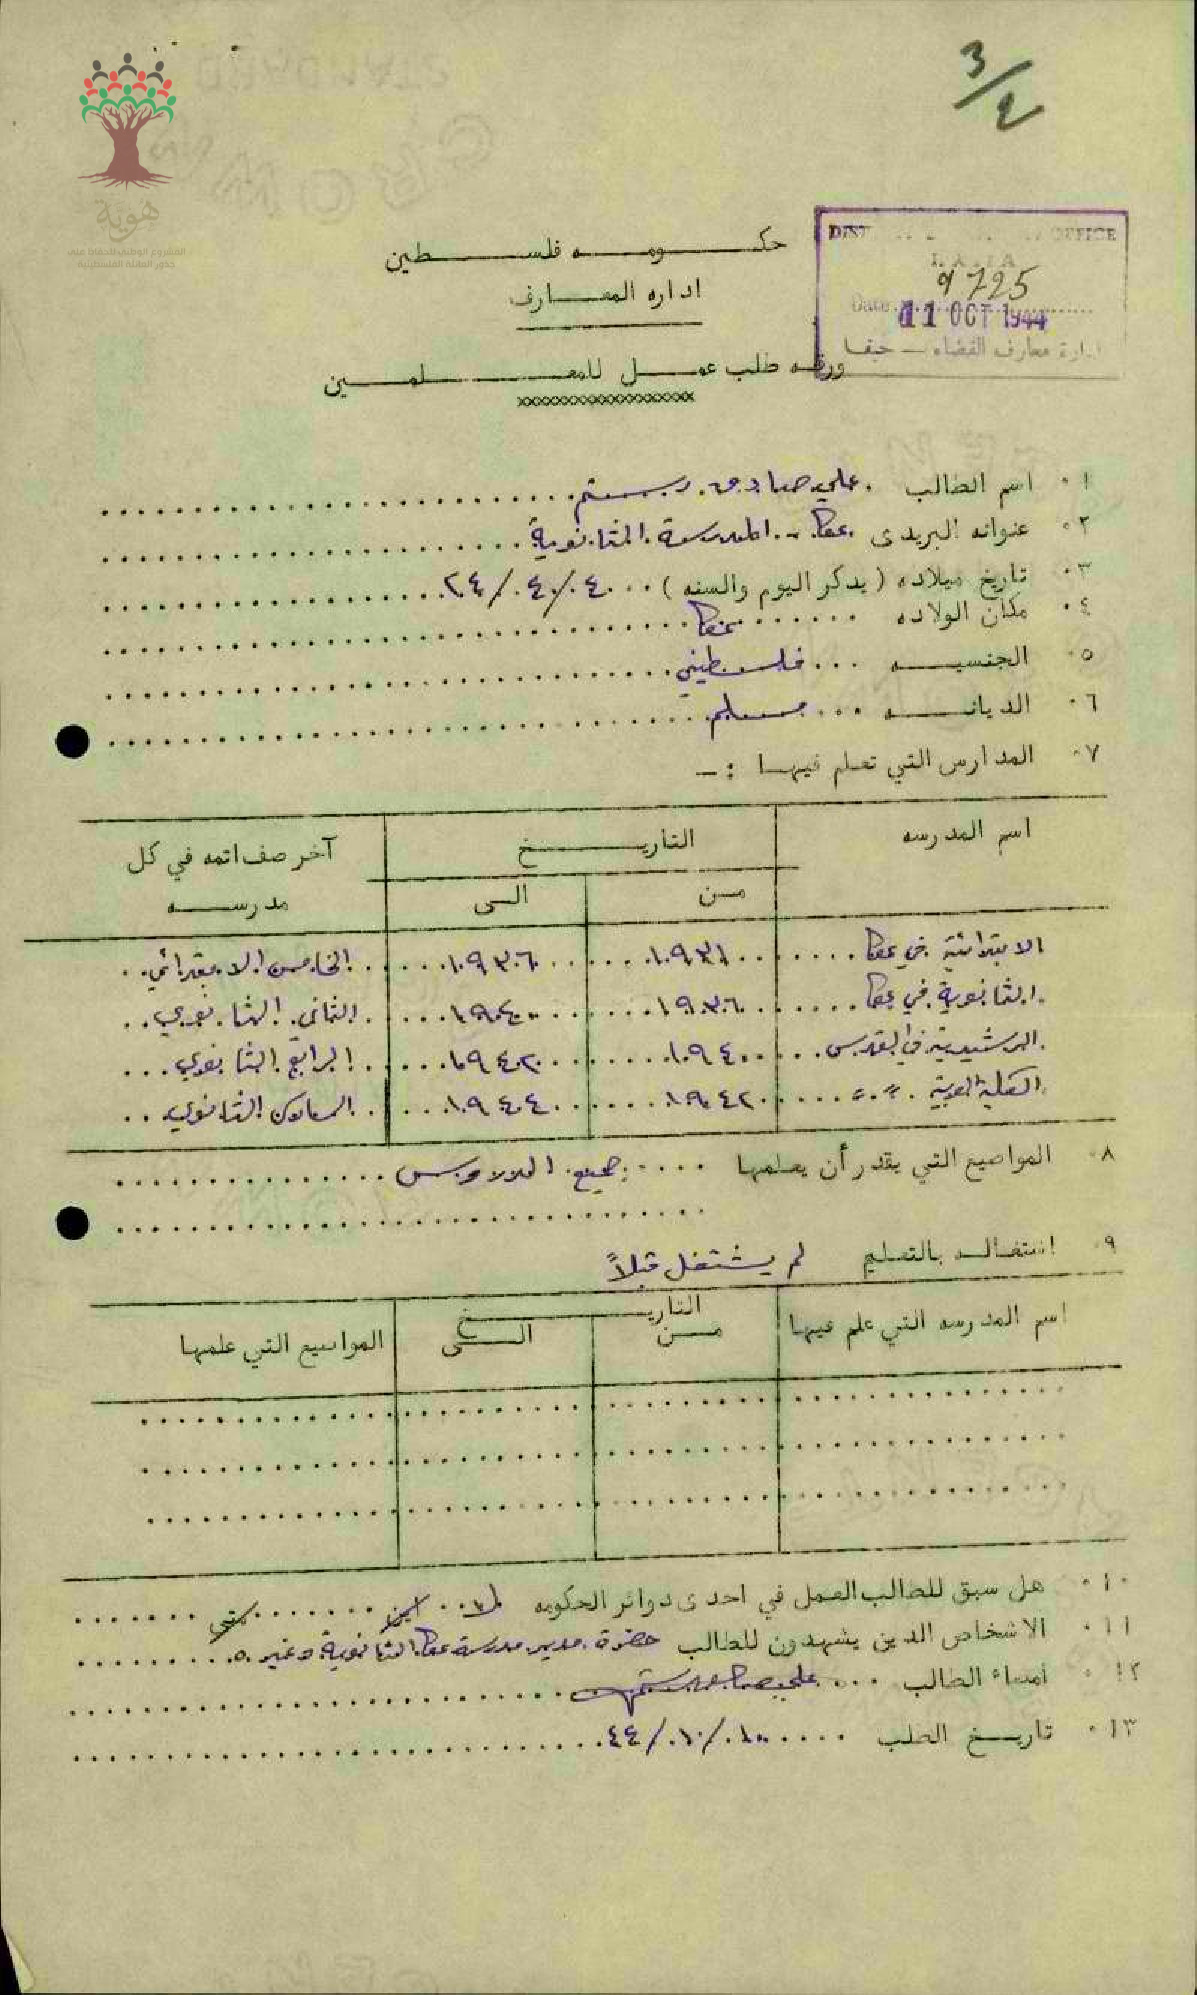 3/4
هوية
المشروع الوطني للحفاظ على
جذور العائلة الفلسطينية
DIST OFFICE
HAIFA
9725
Date 11 OCT 1944
ادارة معارف القضاء — حيفا
حكومه فلسطين
اداره المعارف
ورقه طلب عمل للمعلمين
xxxxxxxxxxxxxxxxxxxx
١٠ اسم الطالب علي صادق رستم
٢٠ عنوانه البريدى عكا - المدرسة الثانوية
٣٠ تاريخ ميلاده (يذكر اليوم والسنه) ٤ / ٤ / ٢٤
٤٠ مكان الولاده عكا
٥٠ الجنسيه فلسطيني
٦٠ الديانه مسلم
٧٠ المدارس التي تعلم فيها :-
اسم المدرسه التاريخ آخر صف اتمه في كل مدرسه
من الى
الابتدائية في عكا ١٩٣١ ١٩٣٦ الخامس الابتدائي
الثانوية في عكا ١٩٣٦ ١٩٤٠ الثاني الثانوي
الرشيدية في القدس ١٩٤٠ ١٩٤٢ الرابع الثانوي
الكلية العربية " " ١٩٤٢ ١٩٤٤ السادس الثانوي
٨٠ المواضيع التي يقدر أن يعلمها جميع الدروس
٩٠ اشتغاله بالتعليم لم يشتغل قبلاً
اسم المدرسه التي علم فيها التاريخ المواضيع التي علمها
من الى
١٠٠ هل سبق للطالب العمل في احدى دوائر الحكومه لا اين متى
١١٠ الاشخاص الذين يشهدون للطالب حضرة مدير مدرسة عكا الثانوية وغيره
١٢٠ امضاء الطالب علي صادق رستم
١٣٠ تاريخ الطلب ١٠ / ١٠ / ٤٤